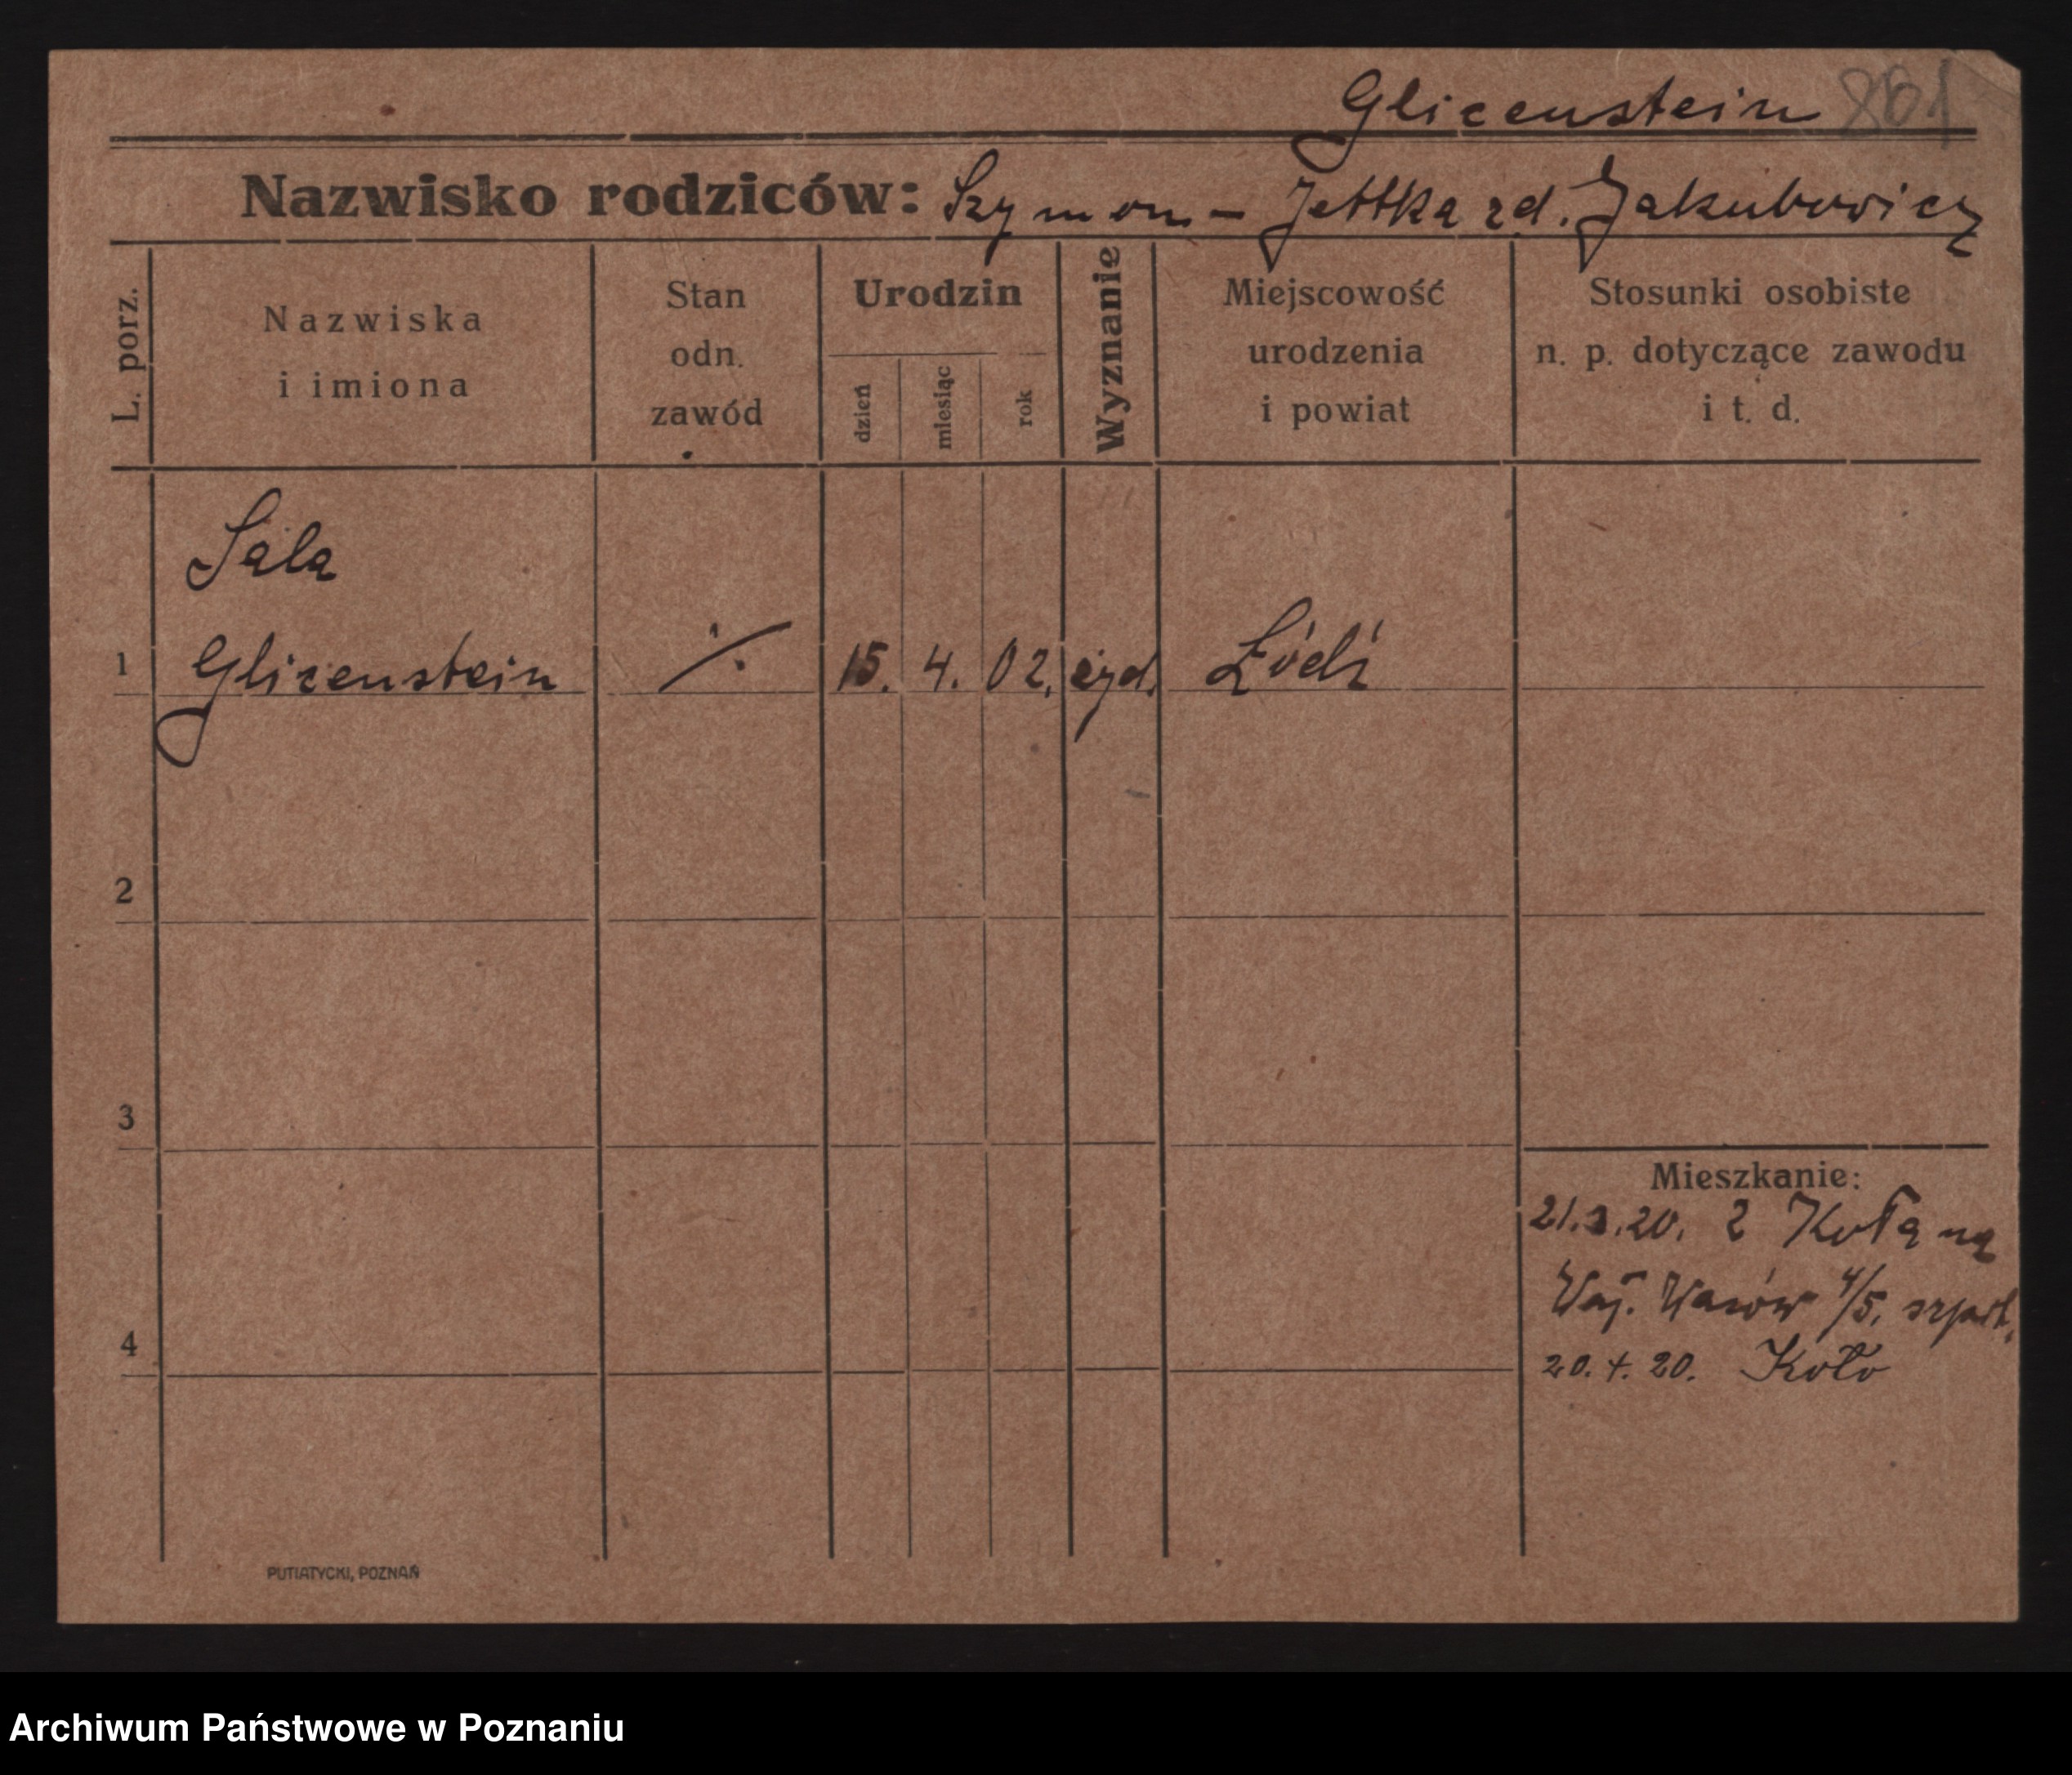 Glicenstein 801
Nazwisko rodziców: Szymon - Jettka zd. Jakubowicz
L. porz.
Nazwiska
i imiona
Stan
odn.
zawód
Urodzin
dzień
miesiąc
rok
Wyznanie
Miejscowość
urodzenia
i powiat
Stosunki osobiste
n. p. dotyczące zawodu
i t. d.
Sala
1 Glicenstein ./. 15. 4. 02. żyd. Łódź
2
3
4
Mieszkanie:
20. z Koła na
4/5,
20. 4. 20. Koło
PUTIATYCKI, POZNAŃ
Archiwum Państwowe w Poznaniu